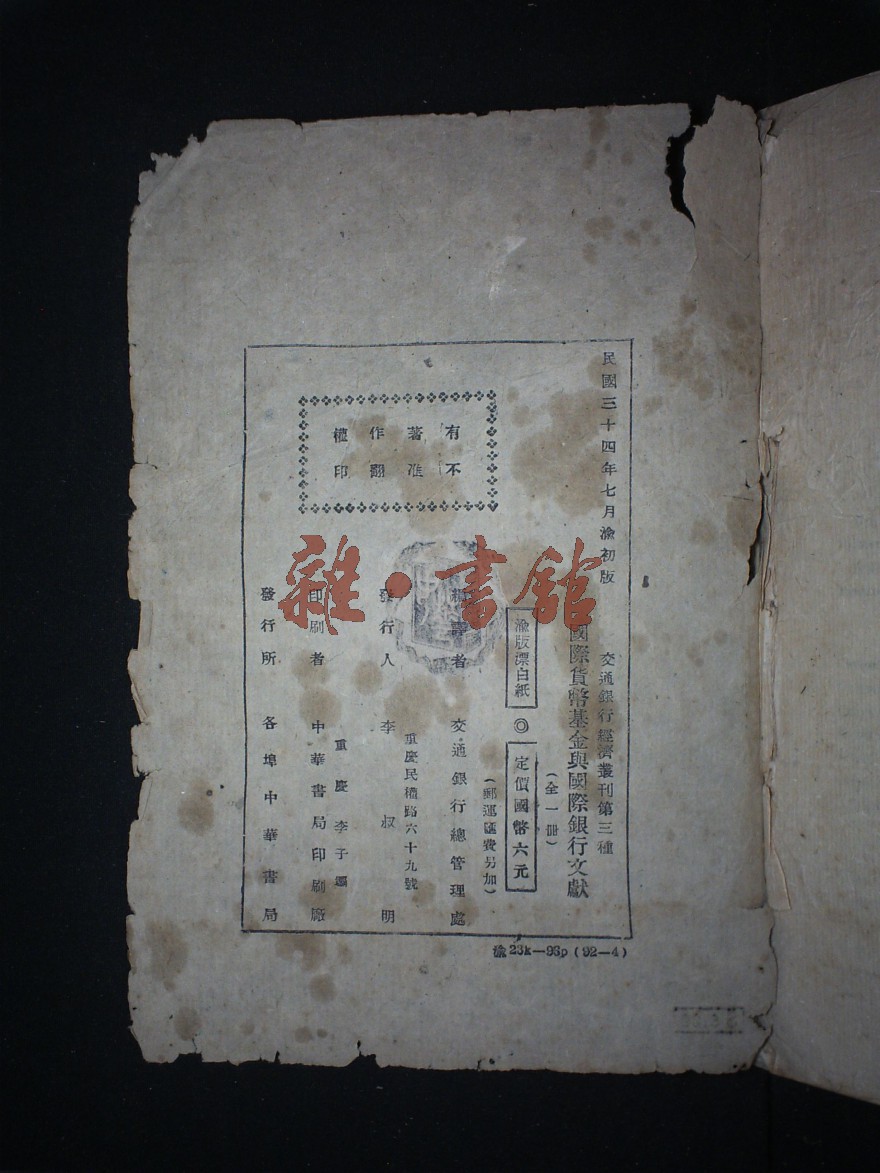 民國三十四年七月渝初版
交通銀行經濟叢刊第三種
國際貨幣基金與國際銀行文獻
(全一冊)
渝版漂白紙
◎
定價國幣六元
(郵運匯費另加)
有著作權
不准翻印
編譯者 交通銀行總管理處
重慶民權路六十九號
發行人 李叔明
重慶李子壩
印刷者 中華書局印刷廠
發行所 各埠中華書局
渝23k—93p(92—4)
雜·書館